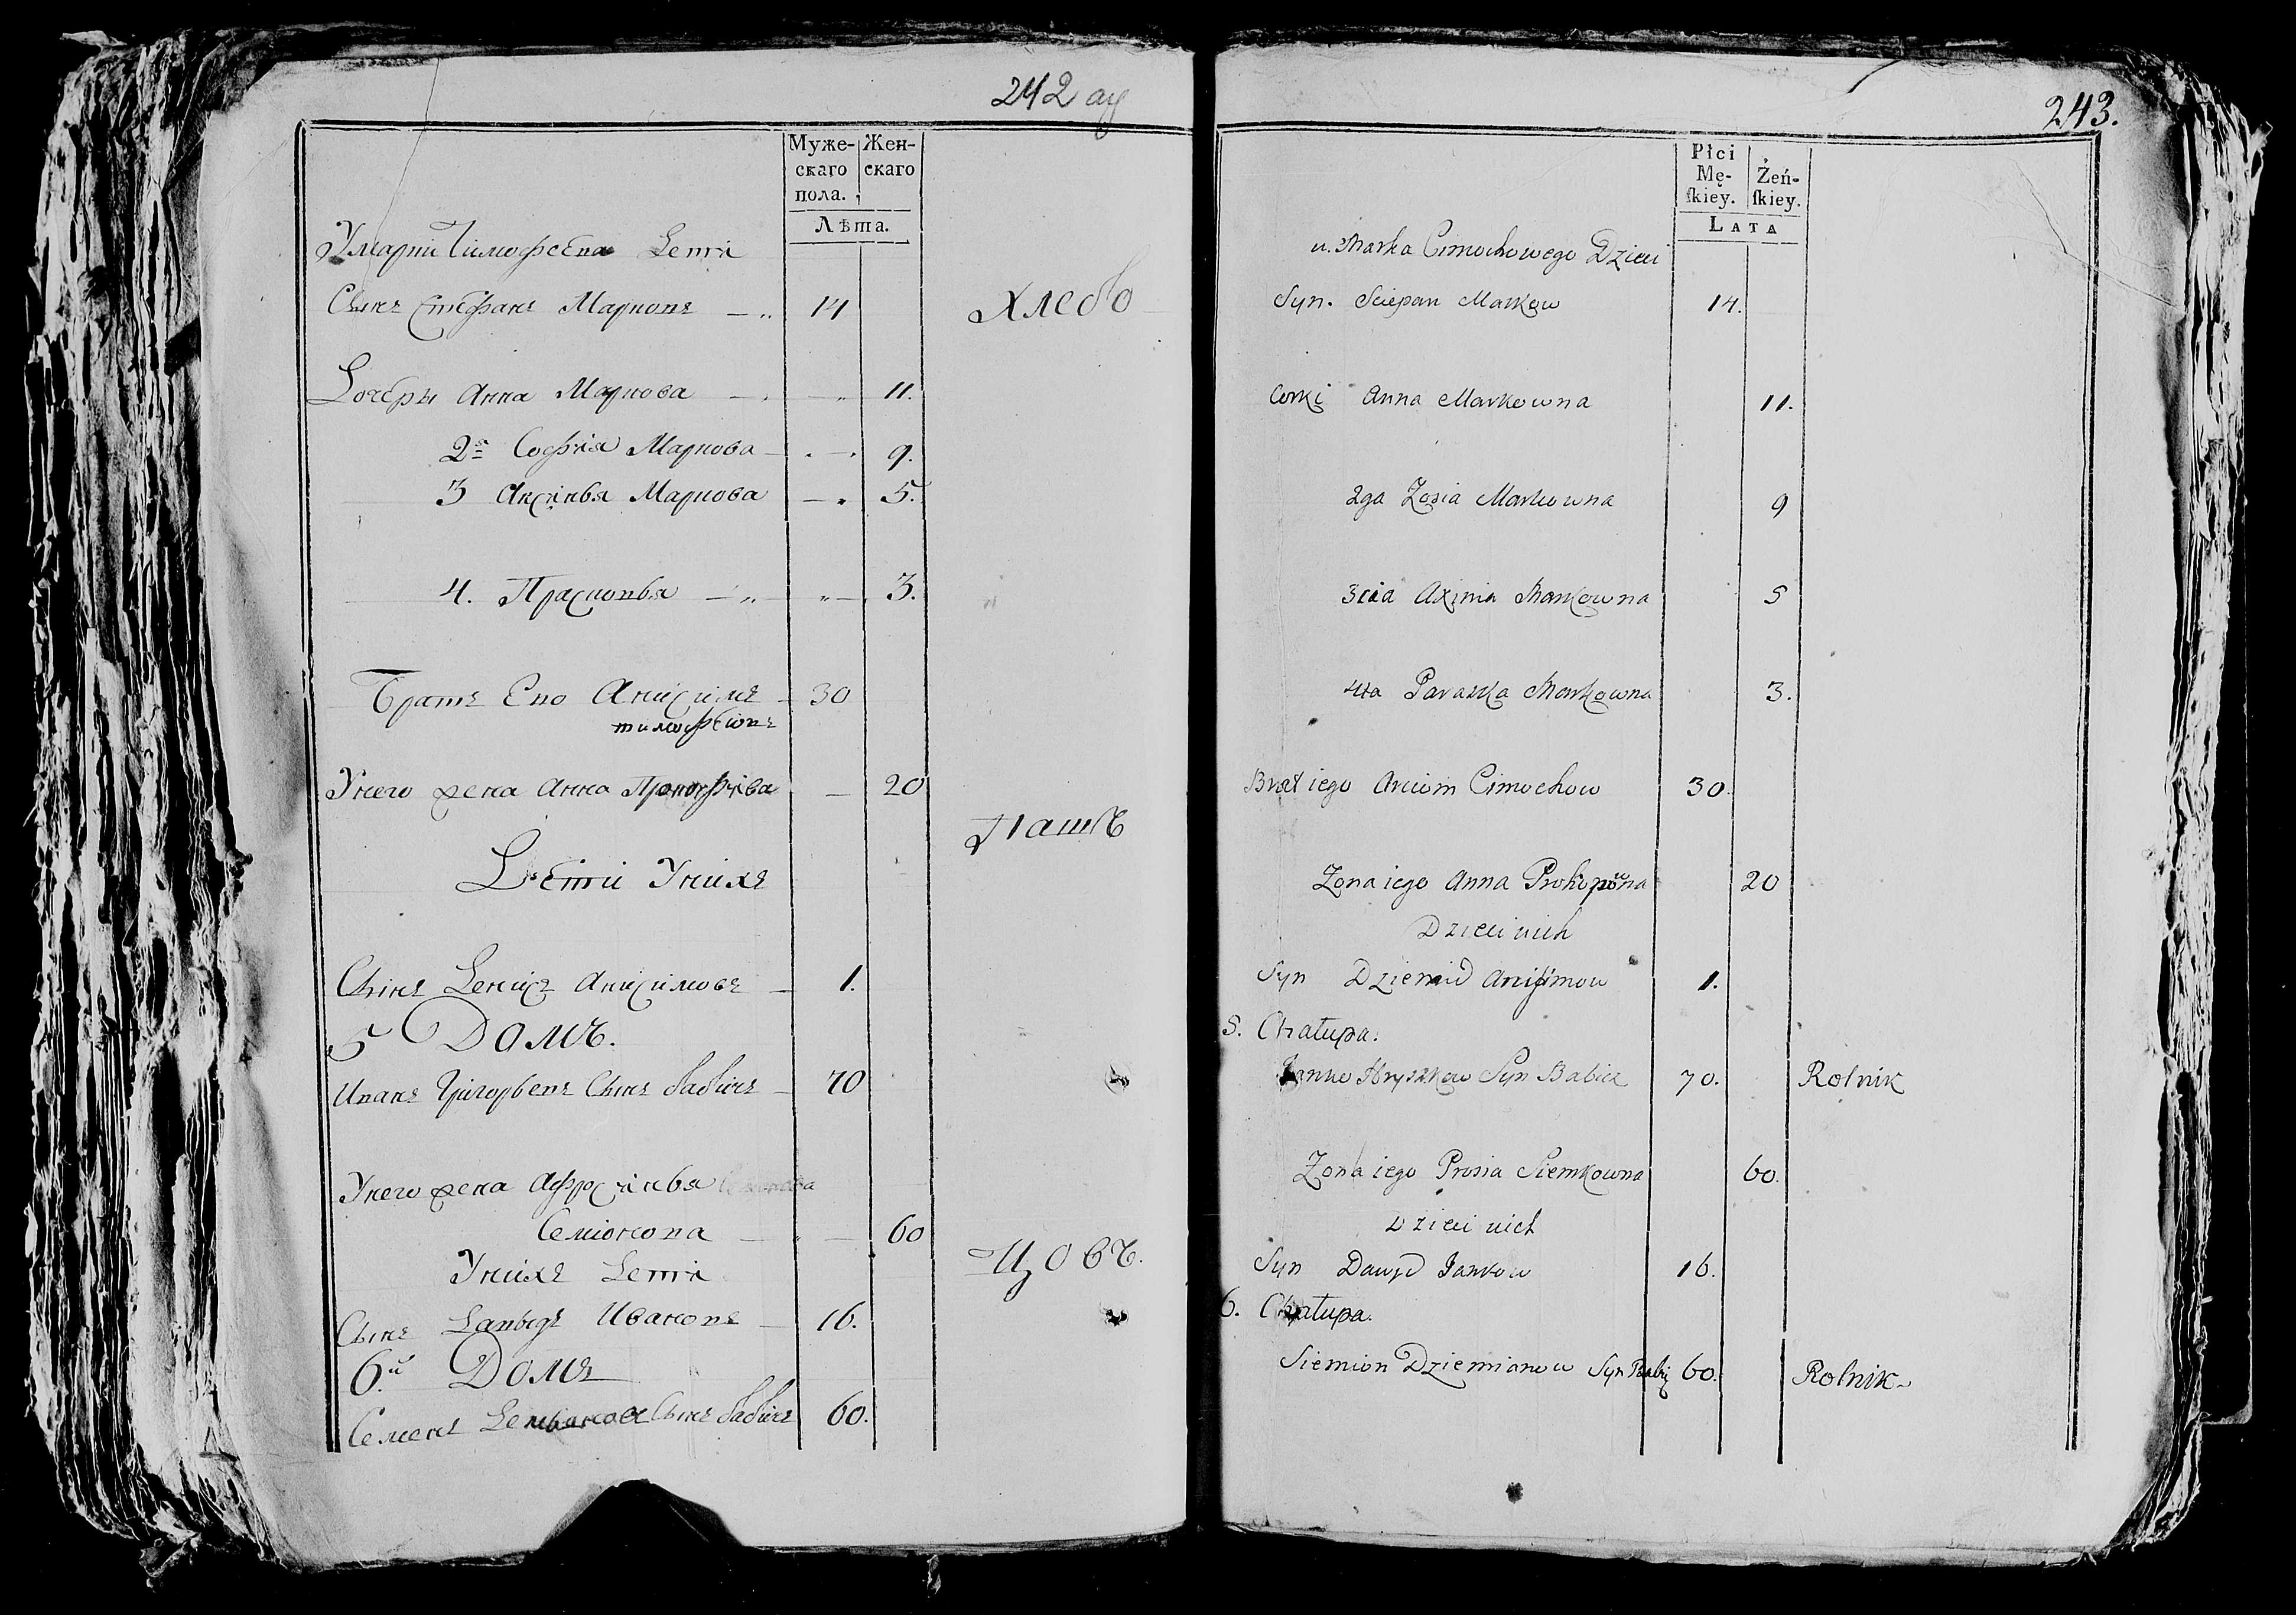 242 ау
Муже- Жен-
скаго скаго
пола.
Лѣта.
Умарки Тимофѣева Дети
Сынъ Стефанъ Марковъ 14 Хлебо
Дочери Анна Маркова 11.
2я Софиа Маркова 9.
3 Аксинья Маркова 5.
4. Прасковья 3.
Братъ Ево Анисимъ 30
тимофѣювъ
Унего жена Анна Прокофиева 20
Пашъ
Дѣти Унихъ
Сынъ Денисъ Анисимовъ 1.
5 Домъ.
Иванъ Григорьевъ Сынъ бабичъ 70
Унего жена Афросинья
Семіонова 60
Унихъ Дети цовъ.
Сынъ Давыдъ Ивановъ 16.
6й Домъ
Семенъ Демьяновъ Сынъ бабичъ 60.
243.
Płci
Mę- Żeń-
ſkiey. ſkiey.
LATA
u. Marka Cimochowego Dzieci
Syn. Sciepan Markow 14.
Corki Anna Markowna 11.
2ga Zosia Markowna 9
3cia Axinia Markowna 5
4ta Paraska Markowna 3.
Brat iego Arciom Cimochow 30.
Zona iego Anna Prokopowna 20
Dzieci nich
Syn Dziemid Anisimow 1.
5. Chałupa.
Janko Hryszkow Syn Babicz 70. Rolnik
Zona iego Prosia Siemkowna 60.
Dzieci nich
Syn Dawyd Jankow 16.
6. Chałupa.
Siemion Dziemianow Syn 60. Rolnik